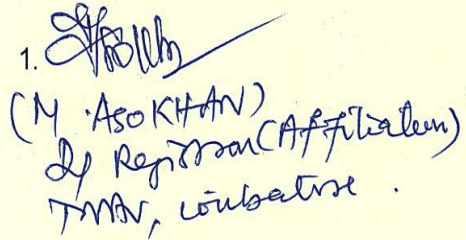 1.
(M. ASOKHAN)
Dy Registrar (Affiliation)
TNAU, Coimbatore.